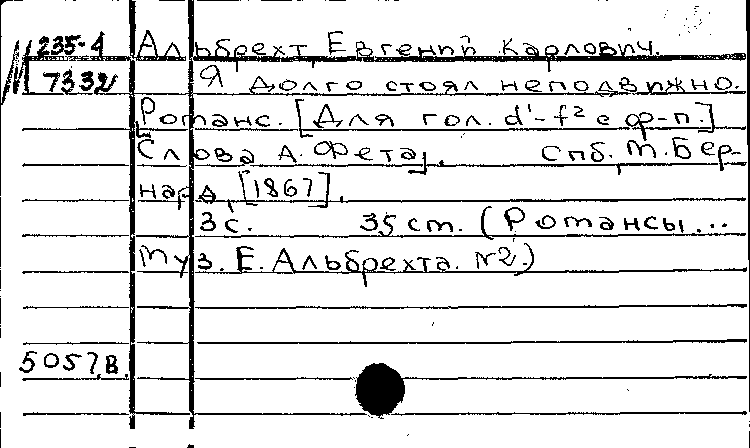 М 235-4 Альбрехт, Евгений Карлович.
7332 Я долго стоял неподвижно.
Романс. [Для гол. d'-f² с ф-п.]
[Слова А. Фета]. Спб., М. Бер-
нард, [1867].
3 с. 35 см. (Романсы...
муз. Е. Альбрехта. №2.)
5057.В.